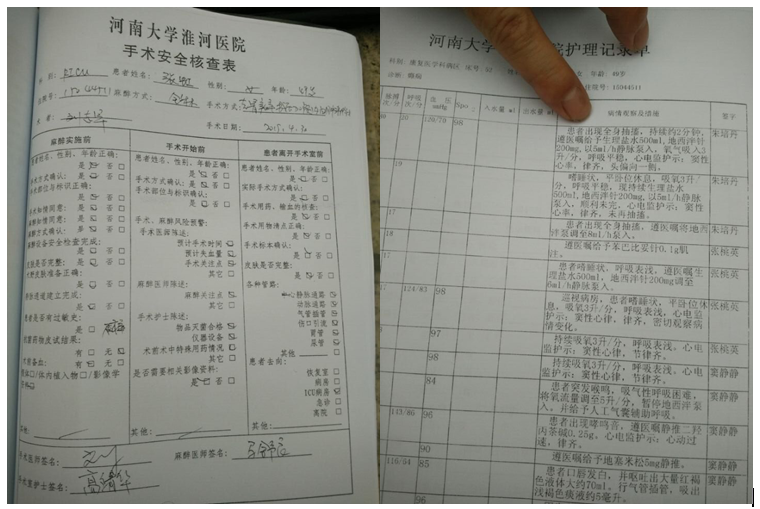 河南大学淮河医院
手术安全核查表
患者姓名: 性别: 年龄:
麻醉方式: 手术方式:
手术日期: 2015.4.20
麻醉实施前
患者姓名、性别、年龄正确:
是 否
手术方式确认:
是 否
手术部位与标识正确:
是 否
手术知情同意: 是 否
麻醉知情同意: 是 否
麻醉方式确认: 是 否
麻醉设备安全检查完成:
是 否
皮肤是否完整: 是 否
是 否
静脉通道建立完成:
是 否
患者是否有过敏史:
是 否
有 无
有 无
体内植入物□/影像学
其他:
手术医师签名:
手术开始前
患者姓名、性别、年龄正确:
是 否
手术方式确认: 是 否
手术部位与标识确认:
是 否
手术、麻醉风险预警:
手术医师陈述:
预计手术时间
预计失血量
手术关注点
其它 □
麻醉医师陈述:
麻醉关注点
其它 □
手术护士陈述:
物品灭菌合格
仪器设备
术前术中特殊用药情况
其它 □
是否需要相关影像资料:
是 否 □
其他:
麻醉医师签名:
患者离开手术室前
患者姓名、性别、年龄正确:
是 否
实际手术方式确认:
是 否
手术用药、输血的核查:
是 否
手术用物清点正确:
是 否
手术标本确认:
是 否
皮肤是否完整:
是 否
各种管路:
静脉通路
动脉通路
气管插管
伤口引流
胃管
尿管
其他 □
患者去向:
恢复室 □
病房 □
ICU病房
急诊 □
离院 □
其他:
手术护士签名:
河南大学 院护理记录单
科别: 康复医学科病区 床号: 女 年龄: 49岁
诊断: 癫痫 住院号: 15044511
脉搏 次/分 呼吸 次/分 血压 mmHg 入水量 ml 出水量 ml 病情观察及措施 签字
20 120/79 98
患者出现全身抽搐,持续约2分钟,
遵医嘱给予生理盐水500ml,地西泮针
200mg,以5ml/h静脉泵入,氧气吸入3
升/分,呼吸平稳,心电监护示:窦性
心率,律齐,头偏向一侧。
朱培丹
19
嗜睡状,平卧位休息,吸氧3升/
分,呼吸平稳,现持续生理盐水
500ml,地西泮针200mg,以5ml/h静脉
泵入,顺利未完,心电监护示:窦性
心率,律齐,未再抽搐。
朱培丹
17
患者出现全身抽搐,遵医嘱将地西
泮泵调至8ml/h泵入。
朱培丹
18
遵医嘱给予苯巴比妥针0.1g肌
注。
张桢英
17
患者嗜睡状,呼吸表浅,遵医嘱生
理盐水500ml,地西泮针200mg调至
6ml/h静脉泵入。
张桢英
17 124/83 98
巡视病房,患者嗜睡状,平卧位休
息,吸氧3升/分,呼吸表浅,心电监
护示:窦性心律,律齐,密切观察病
情变化。
张桢英
97
持续吸氧3升/分,呼吸表浅,心电
监护示:窦性心律,节律齐。
张桢英
98
持续吸氧3升/分,呼吸表浅,心电
监护示:窦性心律,节律齐。
窦静静
84
患者突发喉鸣,吸气性呼吸困难,
将氧流量调至5升/分,暂停地西泮泵
入,并给予人工气囊辅助呼吸。
窦静静
143/86 96
患者出现哮鸣音,遵医嘱静推二羟
丙茶碱0.25g,心电监护示:心动过
速,律齐。
窦静静
90
遵医嘱给予地塞米松5mg静推。
窦静静
116/54 85
患者口唇发白,并呕吐出大量红褐
色液体大约70ml,行气管插管,吸出
浅褐色痰液约5毫升。
窦静静
96